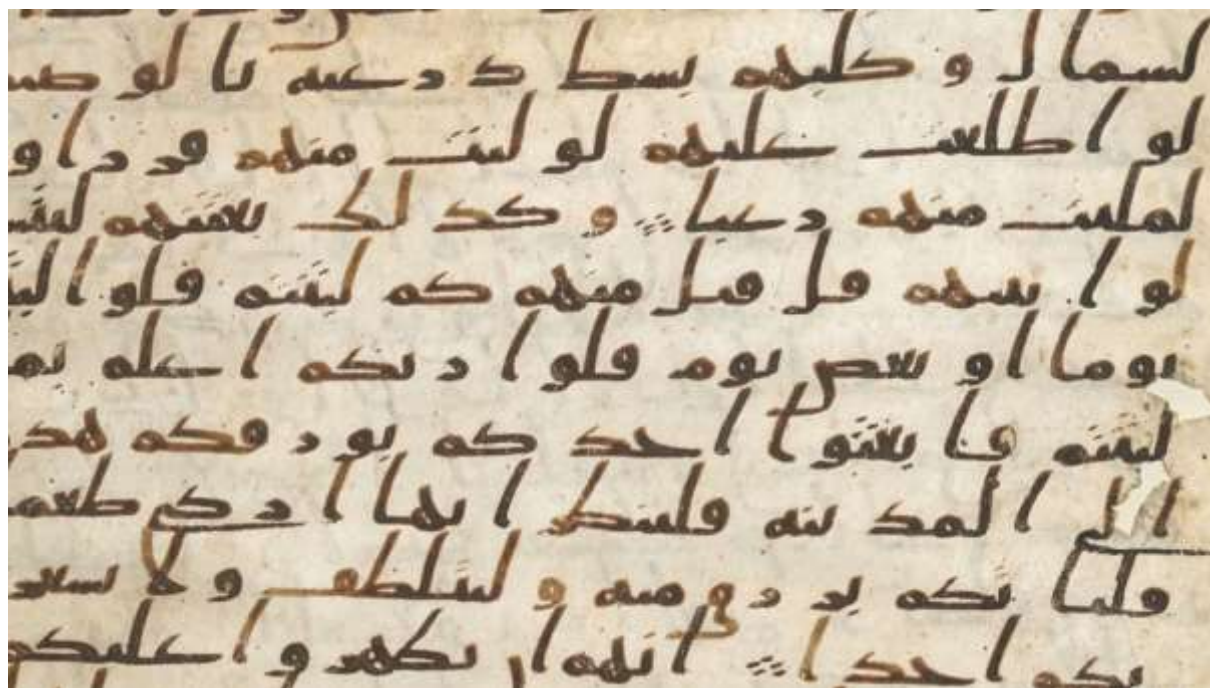 لشمال وكلبهم بسط ذرعيه بالوصيـ
لو اطلعت عليهم لوليت منهم فررا و
لملئت منهم رعبا وكذلك بعثنهم ليتسـ
لوا بينهم قل قئل منهم كم لبثتم قلوا لبثـ
يوما او بعض يوم قلوا ربكم اعلم بما
لبثتم فابعثوا احدكم بورقكم هذ
الى المدينه فلينظر ايها ازكى طعما
فلياتكم برزق منه وليتلطف ولا يشعر
بكم احدا انهم ان يظهروا عليكم